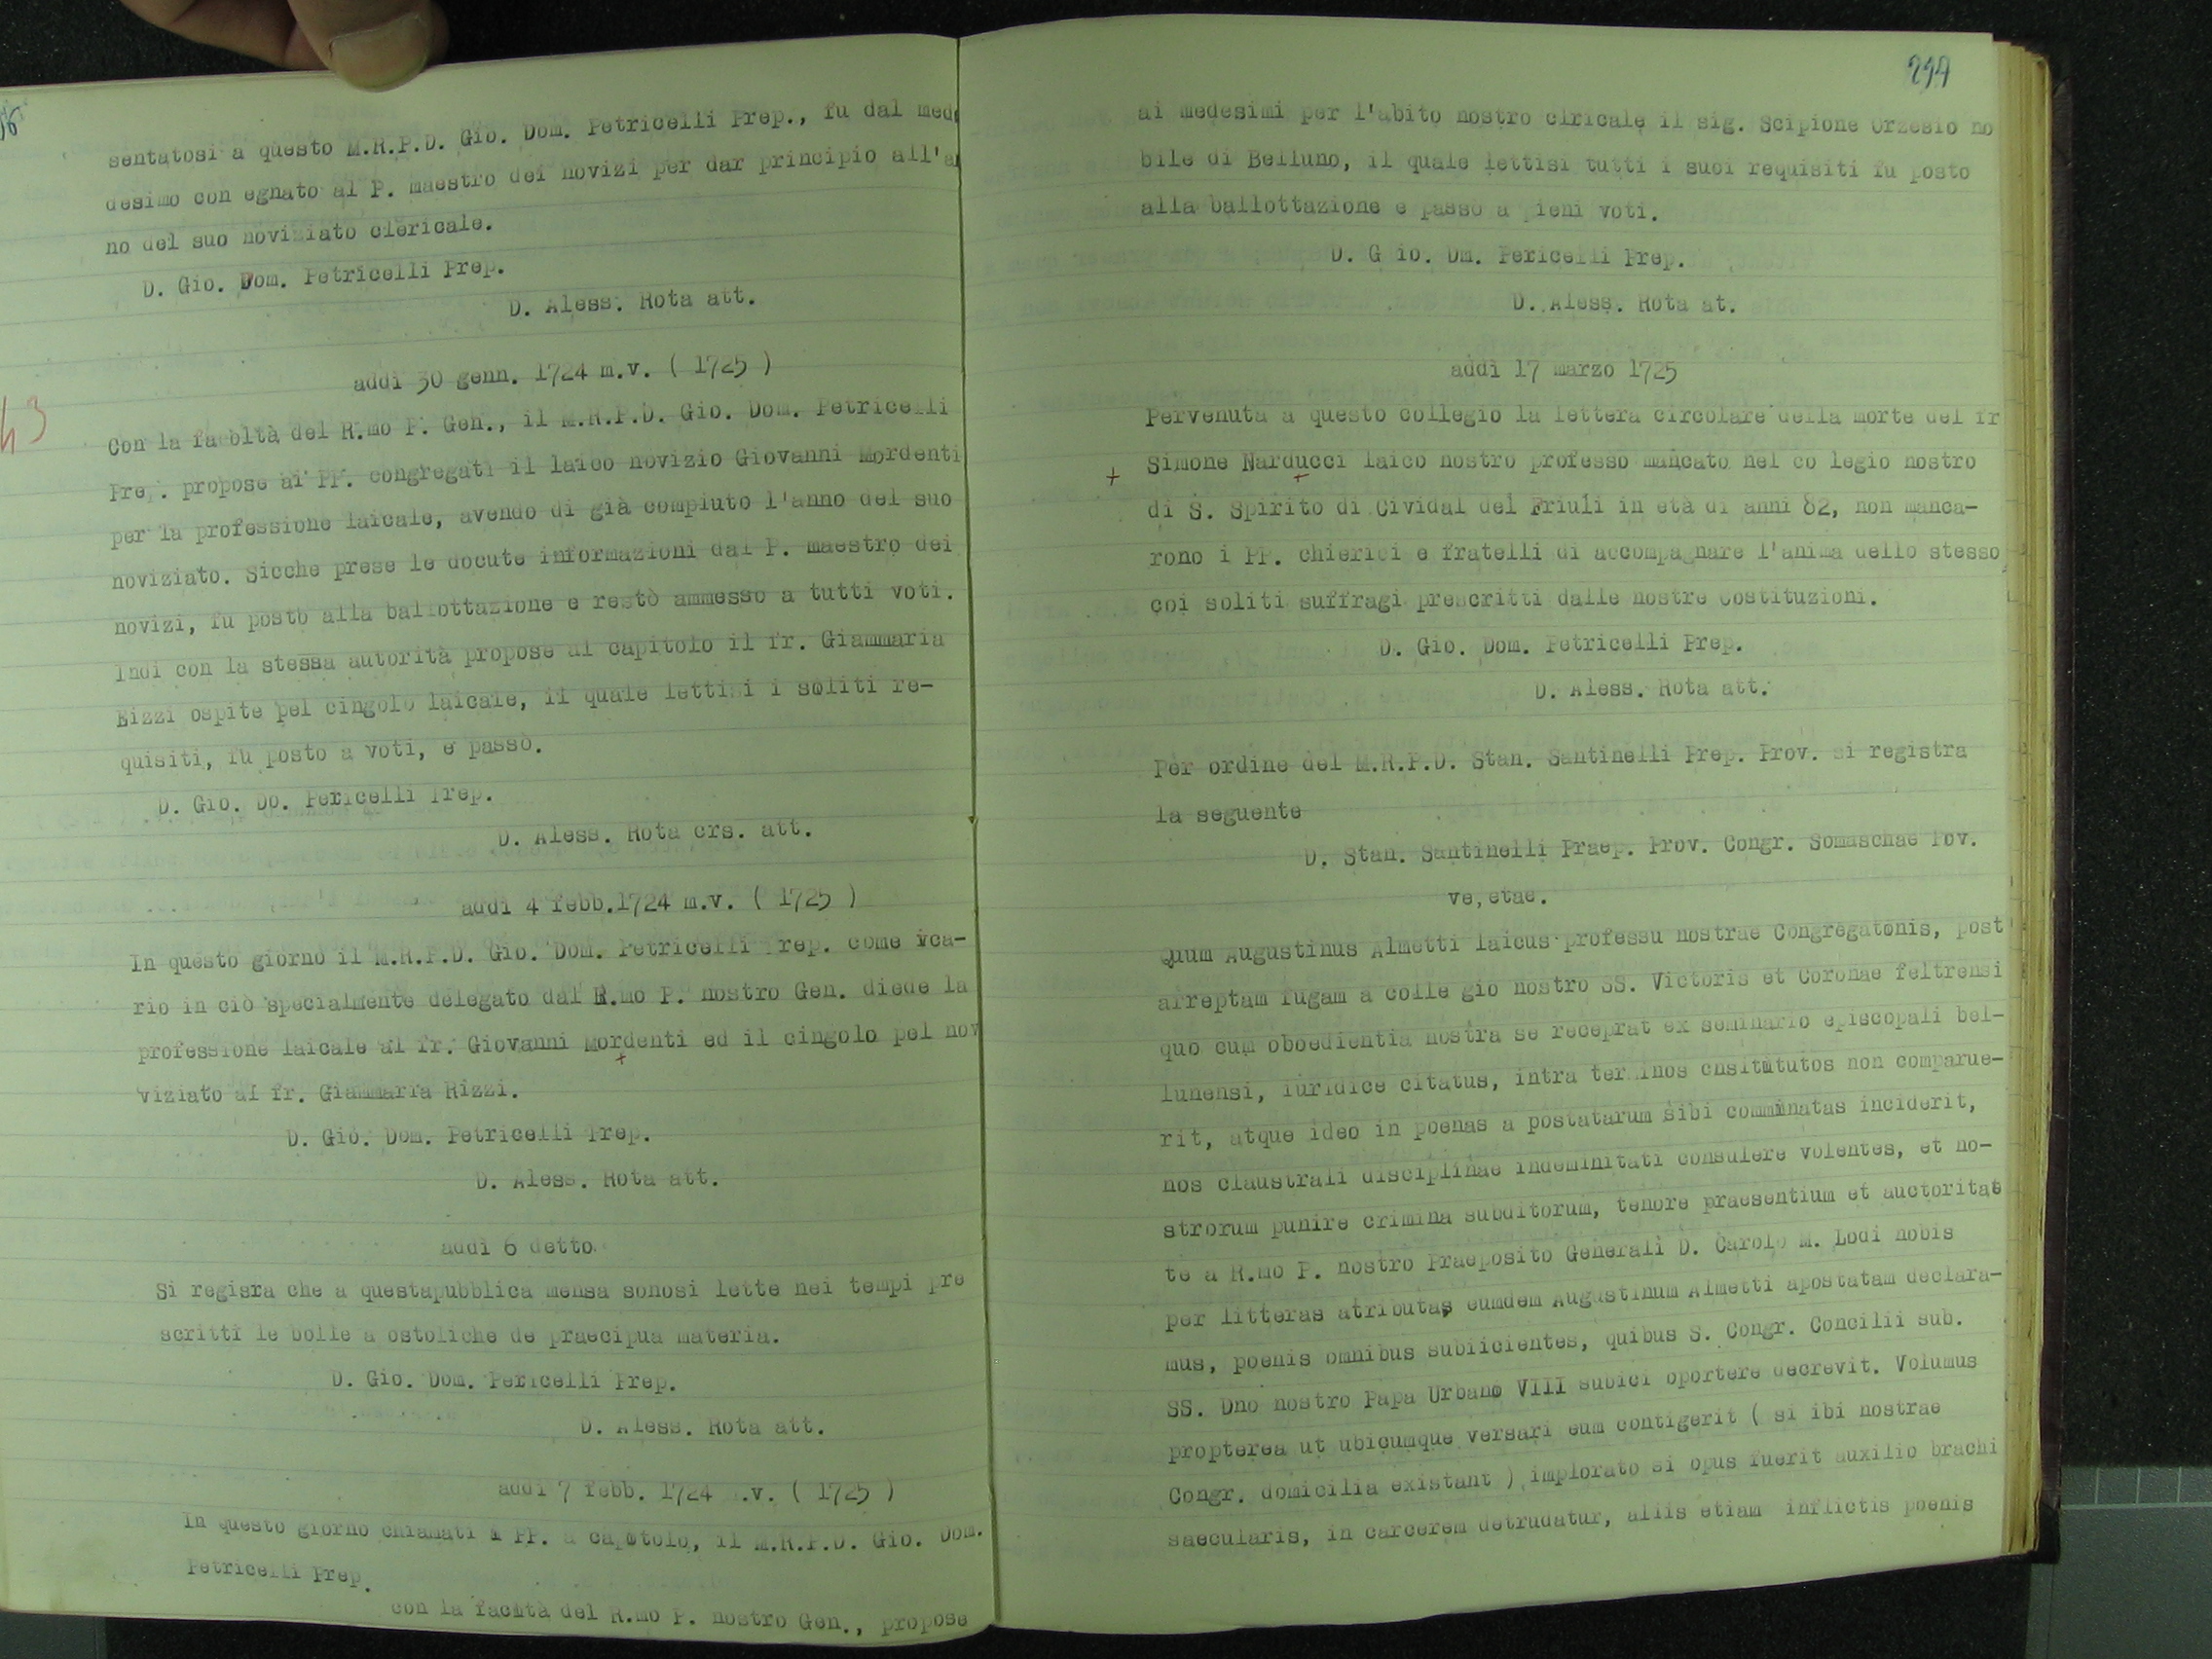 sentatosi a questo M.R.P.D. Gio. Dom. Petricelli Prep., fu dal med
desimo con egnato al P. maestro dei novizi per dar principio all'a
no del suo noviziato clericale.
D. Gio. Dom. Petricelli Prep.
D. Aless. Rota att.
addì 30 genn. 1724 m.v. ( 1725 )
43
Con la facoltà del R.mo P. Gen., il M.R.P.D. Gio. Dom. Petricelli
Prep. propose ai PP. congregati il laico novizio Giovanni Mordenti
per la professione laicale, avendo di già compiuto l'anno del suo
noviziato. Sicche prese le docute informazioni dal P. maestro dei
novizi, fu posto alla ballottazione e restò ammesso a tutti voti.
Indi con la stessa autorità propose al capitolo il fr. Giammaria
Rizzi ospite pel cingolo laicale, il quale lettisi i soliti re-
quisiti, fu posto a voti, e passò.
D. Gio. Do. Pericelli Prep.
D. Aless. Rota crs. att.
addì 4 febb.1724 m.v. ( 1725 )
In questo giorno il M.R.P.D. Gio. Dom. Petricelli Prep. come vca-
rio in ciò specialmente delegato dal R.mo P. nostro Gen. diede la
professione laicale al fr. Giovanni Mordenti ed il cingolo pel nov
+
viziato al fr. Giammaria Rizzi.
D. Gio. Dom. Petricelli Prep.
D. Aless. Rota att.
addì 6 detto
Si regisra che a questapubblica mensa sonosi lette nei tempi pre
scritti le bolle a ostoliche de praecipua materia.
D. Gio. Dom. Pericelli Prep.
D. Aless. Rota att.
addì 7 febb. 1724 .v. ( 1725 )
In questo giorno chiamati i PP. a capitolo, il M.R.P.D. Gio. Dom.
Petricelli Prep.
con la facltà del R.mo P. nostro Gen., propose
ai medesimi per l'abito nostro clricale il sig. Scipione Orzesio no
bile di Belluno, il quale lettisi tutti i suoi requisiti fu posto
alla ballottazione e passò a pieni voti.
D. G io. Dm. Pericelli Prep.
D. Aless. Rota at.
addì 17 marzo 1725
Pervenuta a questo collegio la lettera circolare della morte del fr
+ Simone Narducci laico nostro professo mancato nel co legio nostro
+
di S. Spirito di Cividal del Friuli in età di anni 82, non manca-
rono i PP. chierici e fratelli di accompagnare l'anima dello stesso
coi soliti suffragi prescritti dalle nostre Costituzioni.
D. Gio. Dom. Petricelli Prep.
D. Aless. Rota att.
Per ordine del M.R.P.D. Stan. Santinelli Prep. Prov. si registra
la seguente
D. Stan. Santinelli Praep. Prov. Congr. Somaschae Pov.
ve,etae.
Quum Augustinus Almetti laicus professu nostrae Congregatonis, post
arreptam fugam a colle gio nostro SS. Victoris et Coronae feltrensi
quo cum oboedientia nostra se receprat ex seminario episcopali bel-
lunensi, iuridice citatus, intra terminos cnsitutos non comparue-
rit, atque ideo in poenas a postatarum sibi comminatas inciderit,
nos claustrali disciplinae indeminitati consulere volentes, et no-
strorum punire crimina subditorum, tenore praesentium et auctoritat
te a R.mo P. nostro Praeposito Generali D. Carolo M. Lodi nobis
per litteras atributas eumdem Augustinum Almetti apostatam declara-
mus, poenis omnibus subiicientes, quibus S. Congr. Concilii sub.
SS. Dno nostro Papa Urbano VIII subici oportere decrevit. Volumus
propterea ut ubicumque versari eum contigerit ( si ibi nostrae
Congr. domicilia existant ) implorato si opus fuerit auxilio brachi
saecularis, in carcerem detrudatur, allis etiam inflictis poenis